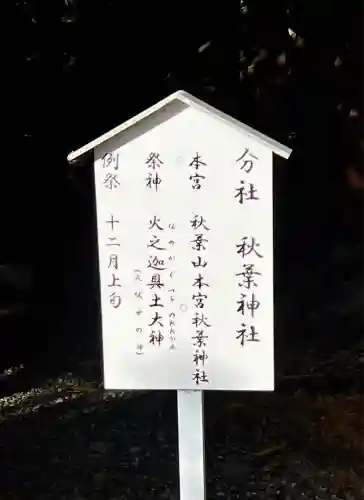 分社 秋葉神社
本宮 秋葉山本宮秋葉神社
祭神 火之迦具土大神
ほのかぐつちのおおかみ
(火伏せの神)
例祭 十二月上旬